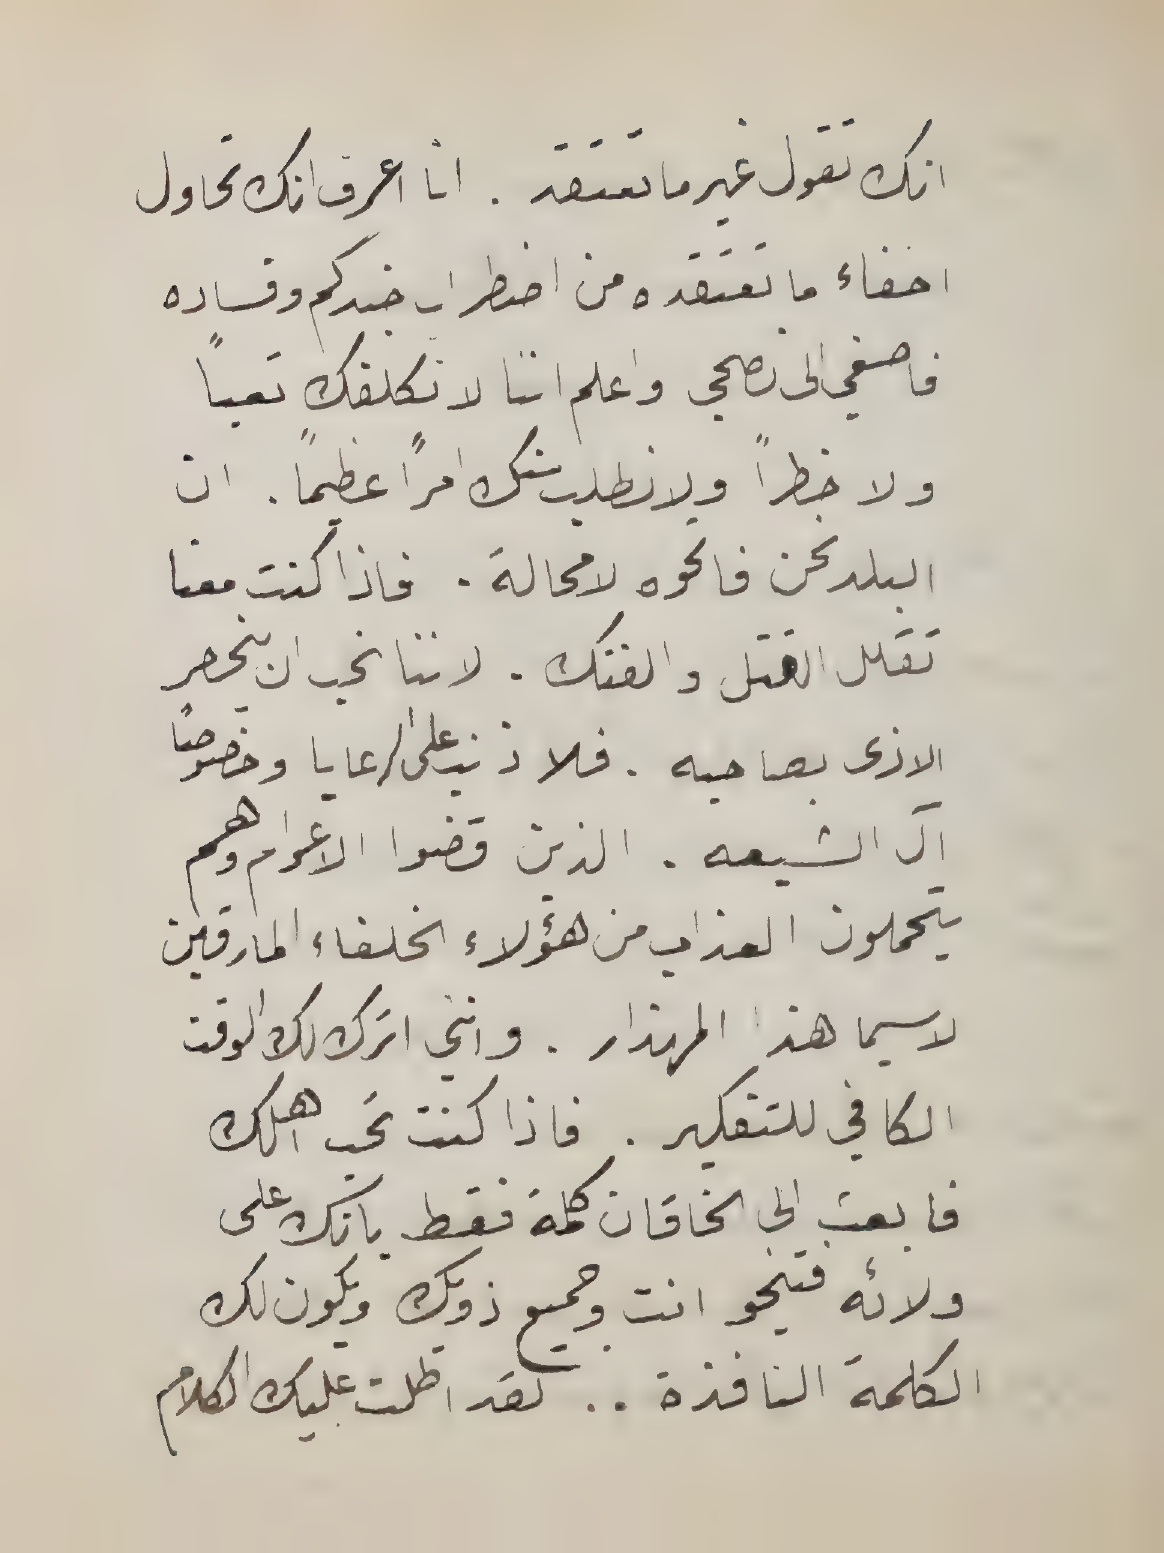 انك تقول غير ما تعتقد . انا اعرف انك تحاول
اخفاء ما تعتقده من اضطراب جندكم وفساده
فاصغي الى نصحي واعلم اننا لا نكلفك تعباً
ولا خطراً ولا نطلب منك امراً عظيماً . ان
البلد نحن فاتحوه لا محالة . فاذا كنت معنا
تقلل القتل والفتك . لاننا نحب ان ينحصر
الاذى بصاحبه . فلا ذنب على الرعايا وخصوصاً
آل الشيعه . الذين قضوا الاعوام وهم
يتحملون العذاب من هؤلاء الخلفاء المارقين
لاسيما هذا المهذار . وانني اترك لك الوقت
الكافي للتفكير . فاذا كنت تحب اهلك
فابعث الى الخاقان كلمة فقط بانك على
ولائه فتنجو انت وجميع ذويك ويكون لك
الكلمة النافذة .. لقد اطلت عليك الكلام